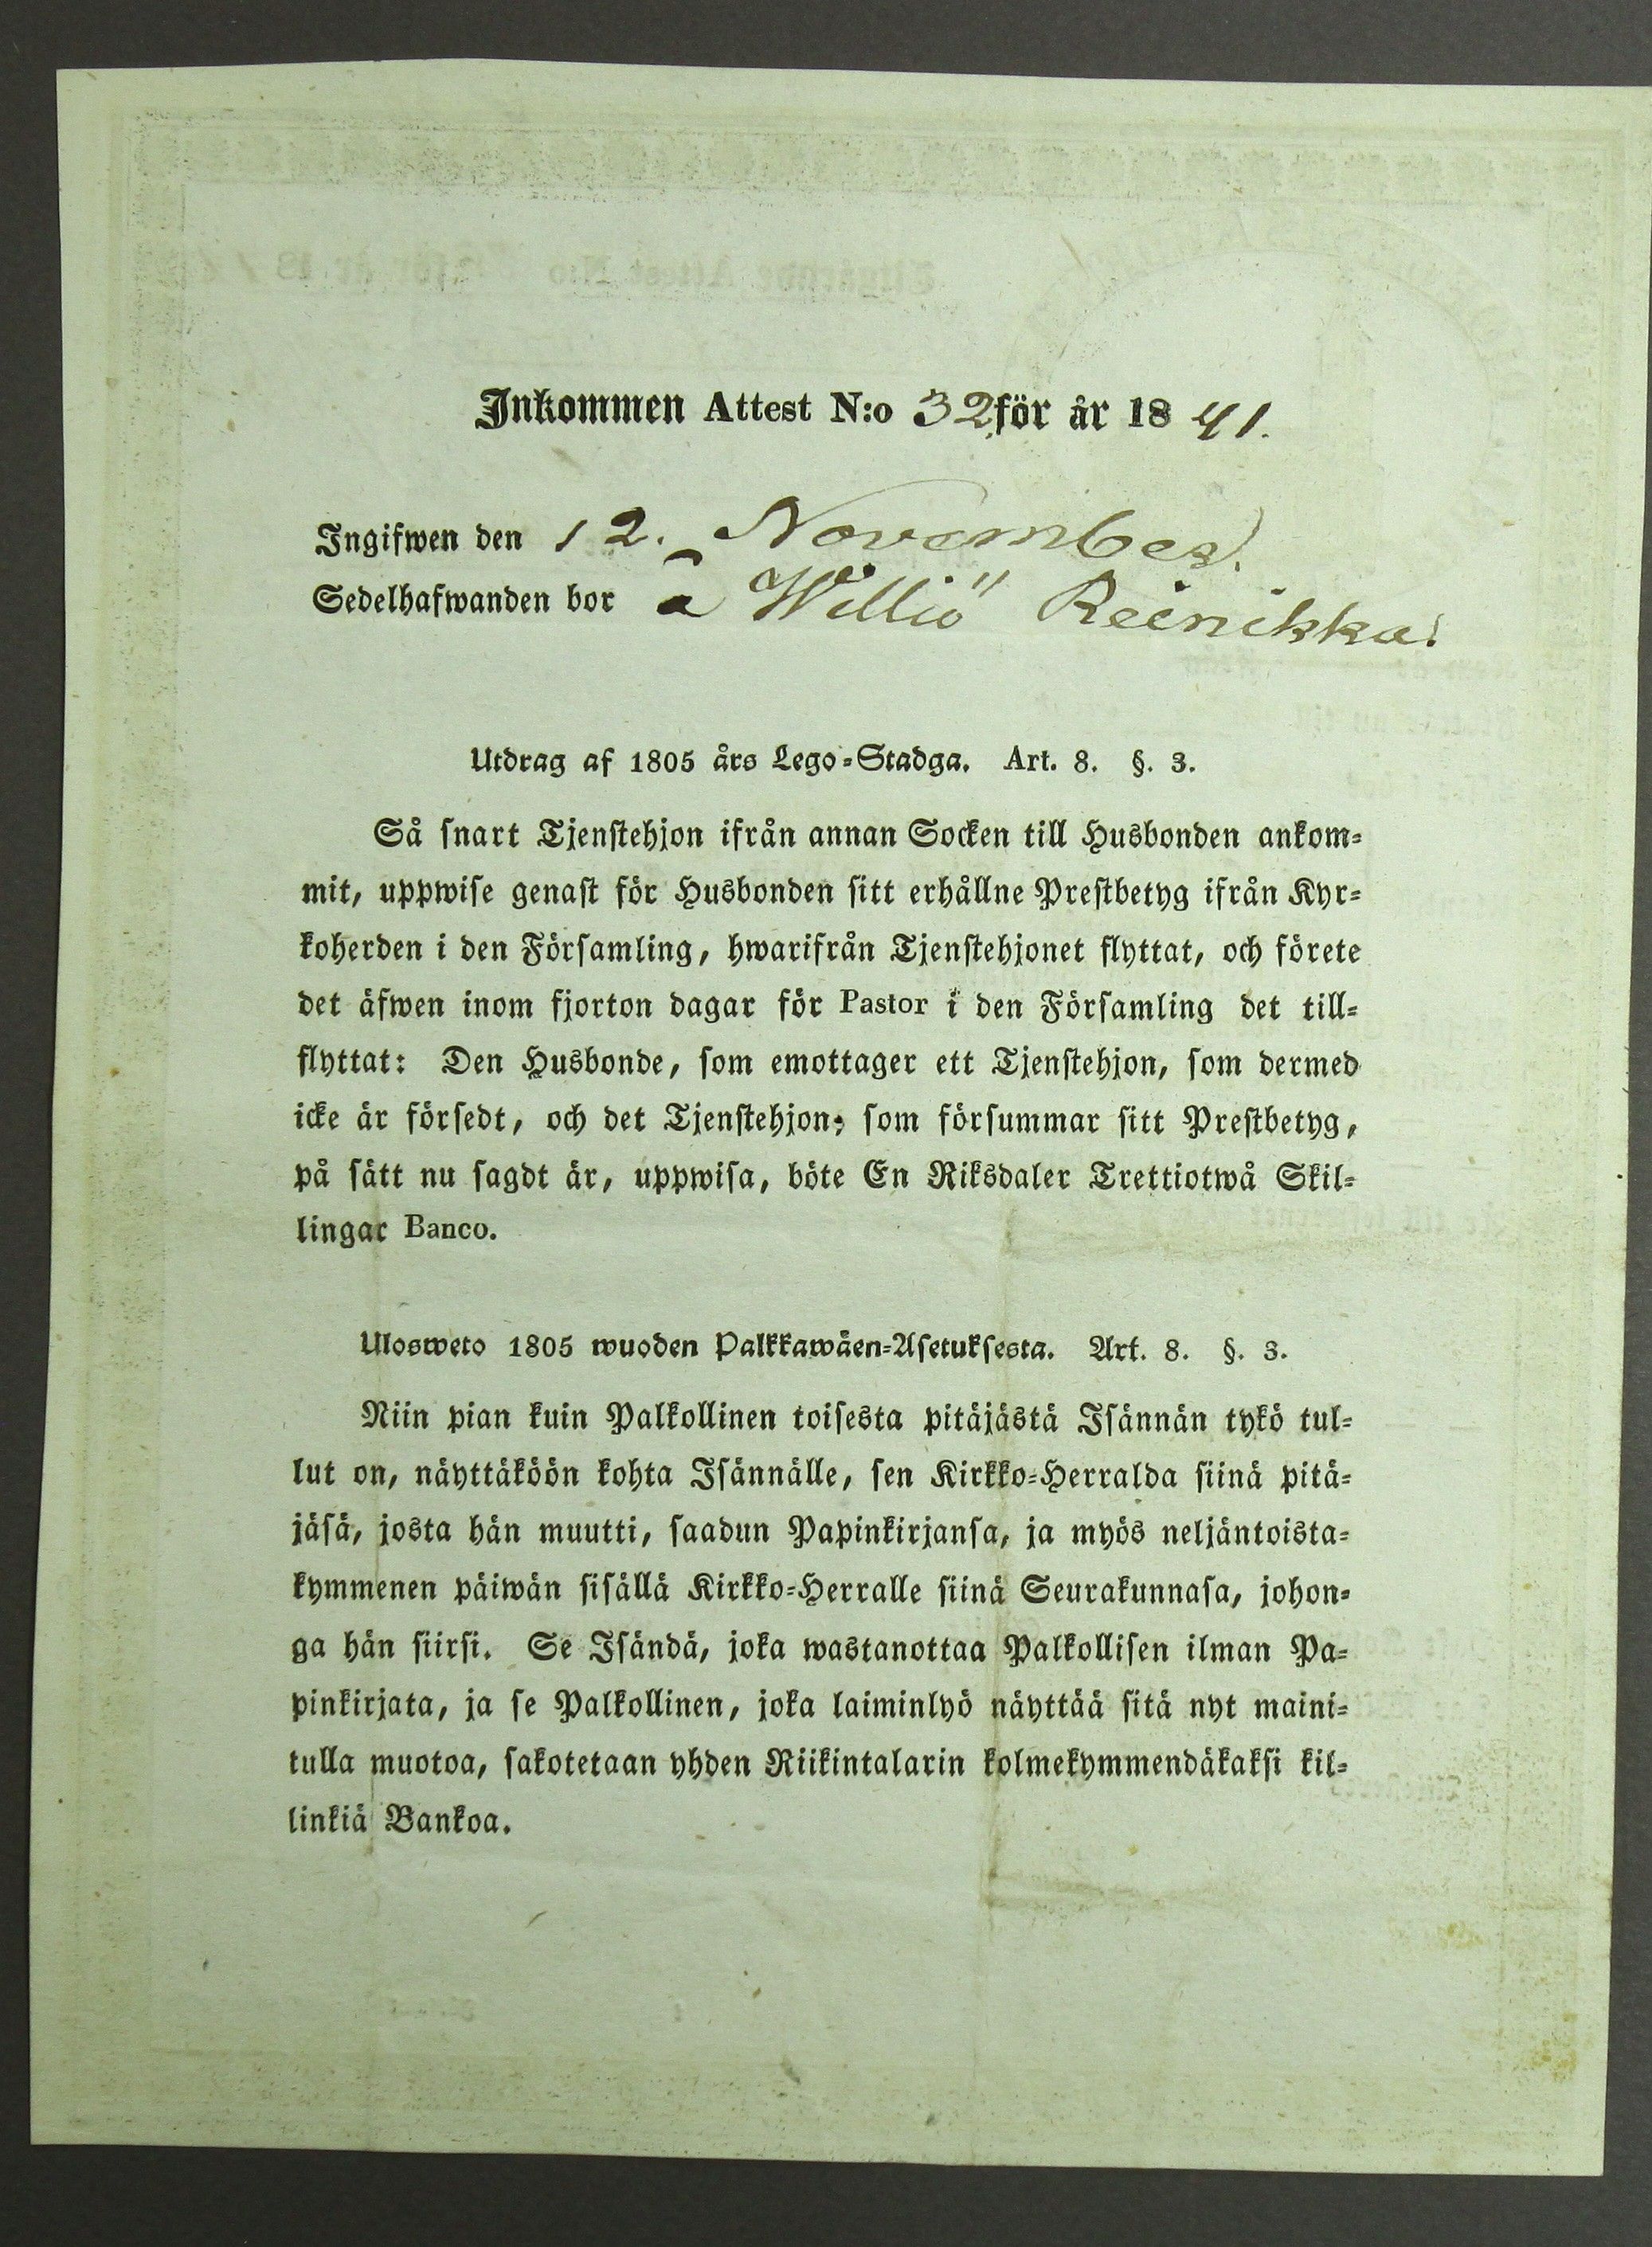 Inkommen Attest N:o 32 för år 1841.
Ingifwen den 12. November.
Sedelhafwanden bor å Williö Reinikka.
Utdrag af 1805 års Lego-Stadga. Art. 8. §. 3.
Så snart Tjenstehjon ifrån annan Socken till Husbonden ankom-
mit, uppwise genast för Husbonden sitt erhållne Prestbetyg ifrån Kyr-
koherden i den Församling, hwarifrån Tjenstehjonet flyttat, och förete
det äfwen inom fjorton dagar för Pastor i den Församling det till-
flyttat: Den Husbonde, som emottager ett Tjenstehjon, som dermed
icke är försedt, och det Tjenstehjon, som försummar sitt Prestbetyg,
på sätt nu sagdt är, uppwisa, böte En Riksdaler Trettiotwå Skil-
lingar Banco.
Ulosweto 1805 wuoden Palkkawäen-Asetuksesta. Art. 8. §. 3.
Niin pian kuin Palkollinen toisesta pitäjästä Isännän tykö tul-
lut on, näyttäköön kohta Isännälle, sen Kirkko-Herralda siinä pitä-
jäsä, josta hän muutti, saadun Papinkirjansa, ja myös neljäntoista-
kymmenen päiwän sisällä Kirkko-Herralle siinä Seurakunnasa, johon-
ga hän siirsi. Se Isändä, joka wastanottaa Palkollisen ilman Pa-
pinkirjata, ja se Palkollinen, joka laiminlyö näyttää sitä nyt maini-
tulla muotoa, sakotetaan yhden Riikintalarin kolmekymmendäkaksi kil-
linkiä Bankoa.